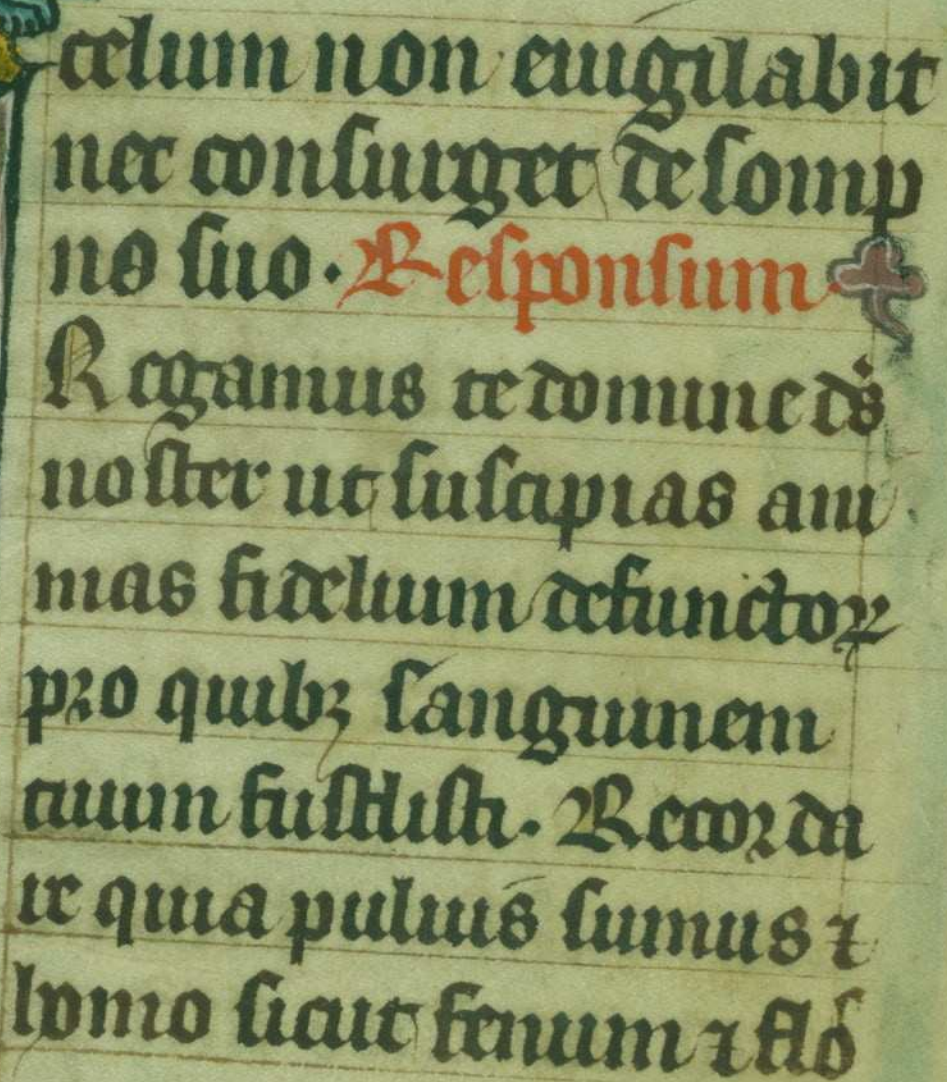 celum non euigilabit
nec consurget de somp
no suo. Responsum
Rogamus te domine ds̄
noster ut suscipias ani
mas fidelium defunctoꝝ
pro quibꝫ sanguinem
tuum fusdisti. Recorda
re quia puluis sumus ⁊
homo sicut fenum ⁊ flos